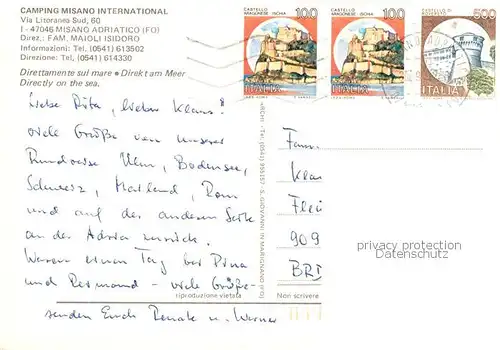 CAMPING MISANO INTERNATIONAL
Via Litoranea Sud, 60
I - 47046 MISANO ADRIATICO (FO)
Direz.: FAM. MAIOLI ISIDORO
Informazioni: Tel. (0541) 613502
Direzione: Tel. (0541) 614330
Direttamente sul mare • Direkt am Meer
Directly on the sea.
CASTELLO ARAGONESE - ISCHIA 100
ITALIA
CASTELLO ARAGONESE - ISCHIA 100
ITALIA
500
ITALIA
Liebe Rita, lieber Klaus!
viele Grüße von unserer
Rundreise Ulm, Bodensee,
Schweiz, Mailand, Rom
und auf der anderen Seite
an der Adria zurück.
Waren einen Tag bei Pina
und Reimund - viele Grüße
senden Euch Renate u. Werner
riproduzione vietata
Tel. (0541) 955157 - S. GIOVANNI IN MARIGNANO (FO)
Non scrivere
Fam.
Klau
Fleu
909
BRD
privacy protection
Datenschutz